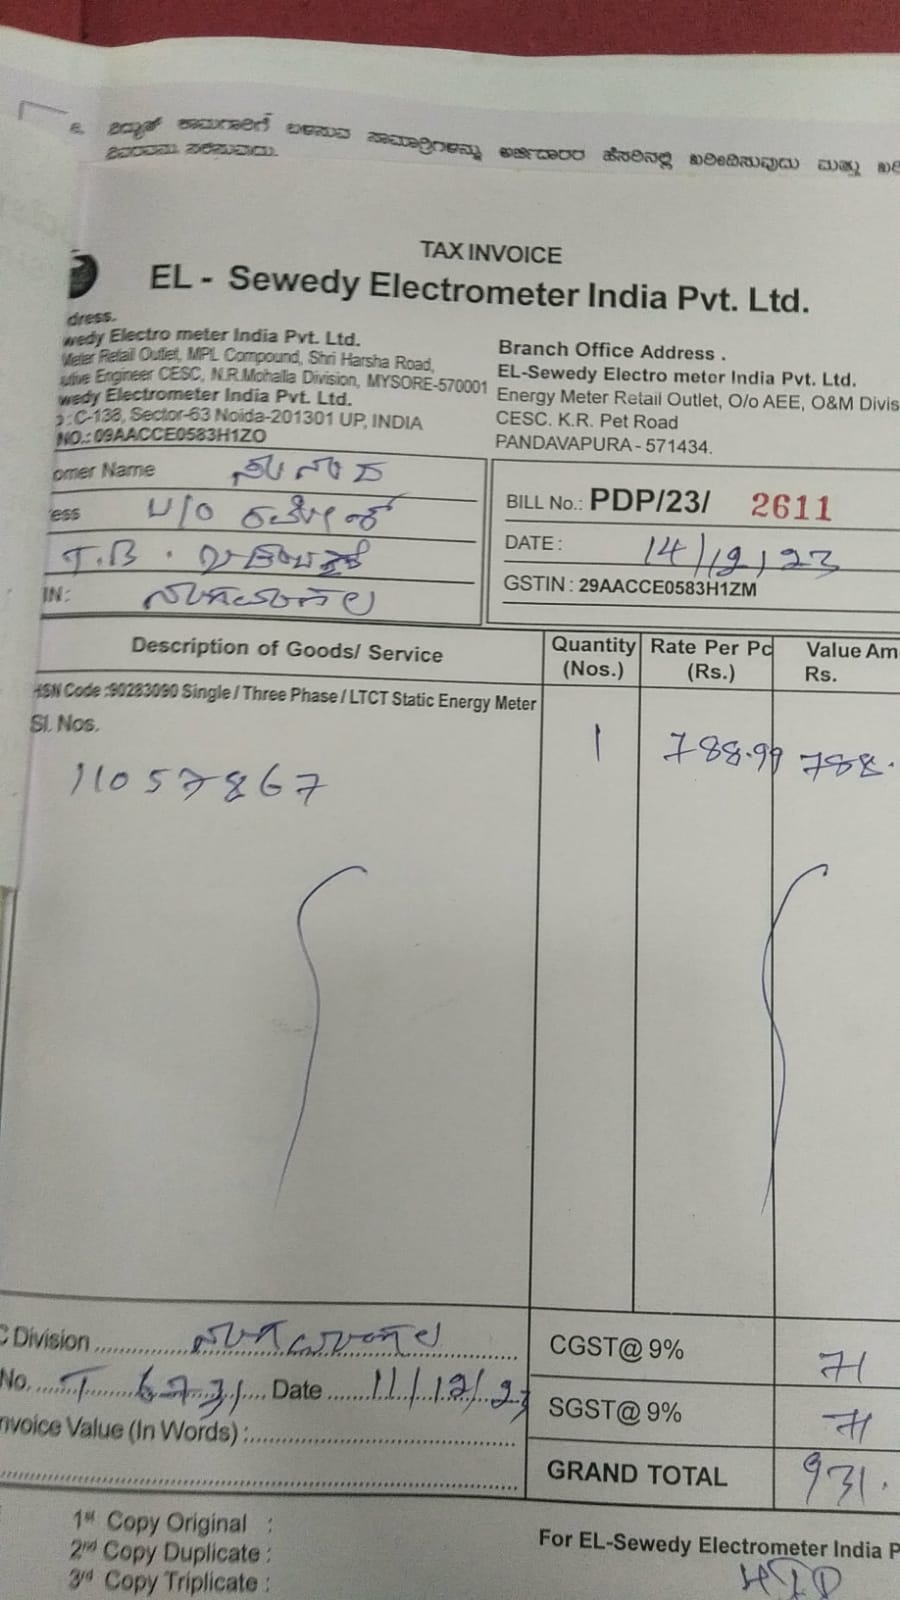 ೬. ವಿದ್ಯುತ್ ಕಾಮಗಾರಿಗೆ ಬಳಸುವ ಸಾಮಾಗ್ರಿಗಳನ್ನು ಅರ್ಜಿದಾರರ ಹೆಸರಿನಲ್ಲಿ ಖರೀದಿಸುವುದು ಮತ್ತು
TAX INVOICE
EL - Sewedy Electrometer India Pvt. Ltd.
dress.
wedy Electro meter India Pvt. Ltd.
Meter Retail Outlet, MPL Compound, Shri Harsha Road,
utive Engineer CESC, N.R.Mohalla Division, MYSORE-570001
wedy Electrometer India Pvt. Ltd.
: C-138, Sector-63 Noida-201301 UP, INDIA
NO.: 09AACCE0583H1ZO
Branch Office Address .
EL-Sewedy Electro meter India Pvt. Ltd.
Energy Meter Retail Outlet, O/o AEE, O&M Divis
CESC. K.R. Pet Road
PANDAVAPURA - 571434.
omer Name
ess W/O
T.B.
IN: ನಾಗಮಂಗಲ
BILL No.: PDP/23/ 2611
DATE : 14/12/23
GSTIN : 29AACCE0583H1ZM
Description of Goods/ Service Quantity (Nos.) Rate Per Pc (Rs.) Value Am Rs.
HSN Code :90283090 Single / Three Phase / LTCT Static Energy Meter
Sl. Nos.
11057867 1 788.99 788.
C Division ನಾಗಮಂಗಲ
No. Date 11/12/23
nvoice Value (In Words) :
CGST@ 9% 71
SGST@ 9% 71
GRAND TOTAL 931.
1st Copy Original :
2nd Copy Duplicate :
3rd Copy Triplicate :
For EL-Sewedy Electrometer India P